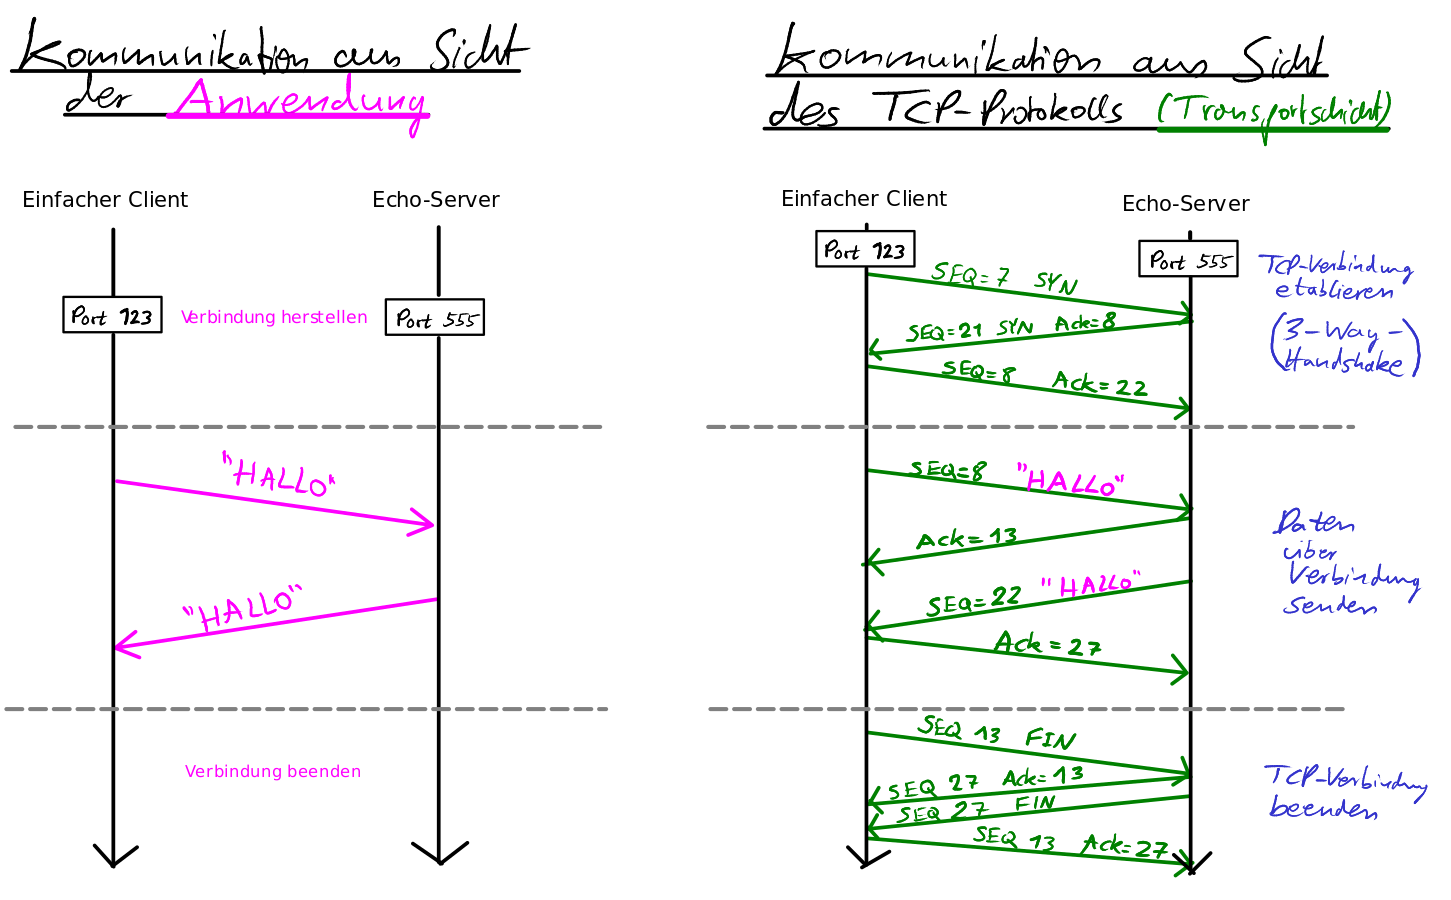 Kommunikation aus Sicht
der Anwendung
Einfacher Client
Echo-Server
Port 123
Verbindung herstellen
Port 555
"HALLO"
"HALLO"
Verbindung beenden
Kommunikation aus Sicht
des TCP-Protokolls (Transportschicht)
Einfacher Client
Echo-Server
Port 123
Port 555
SEQ=7 SYN
SEQ=21 SYN Ack=8
SEQ=8 Ack=22
TCP-Verbindung
etablieren
(3-Way-
Handshake)
SEQ=8 "HALLO"
Ack=13
SEQ=22 "HALLO"
Ack=27
Daten
über
Verbindung
senden
SEQ 13 FIN
SEQ 27 Ack=13
SEQ 27 FIN
SEQ 13 Ack=27
TCP-Verbindung
beenden